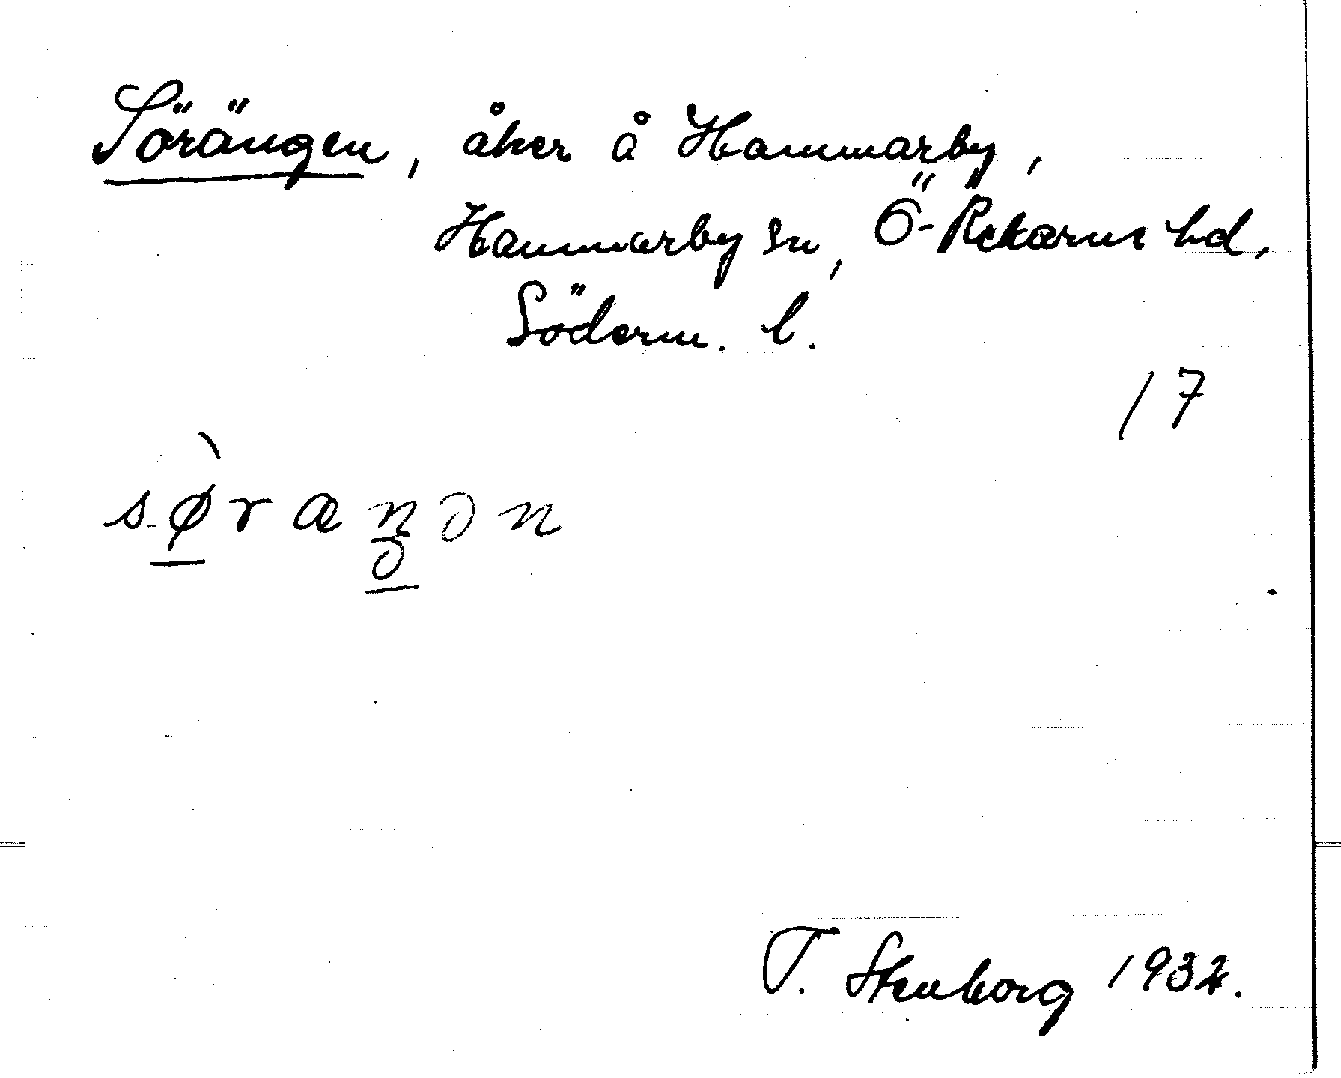 Sörängen, åker å Hammarby,
Hammarby sn, Ö-Rekarne hd,
Söderm. l.
17
sø̀ræŋən
T. Stenborg 1932.